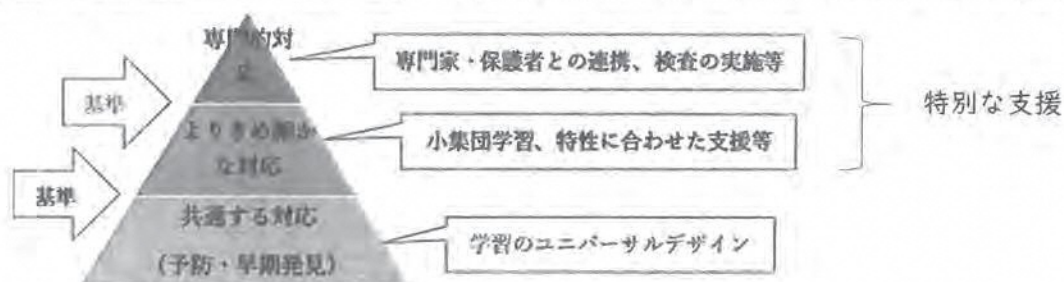 専門的対
応
専門家・保護者との連携、検査の実施等
基準
特別な支援
よりきめ細か
な対応
小集団学習、特性に合わせた支援等
基準
共通する対応
(予防・早期発見)
学習のユニバーサルデザイン